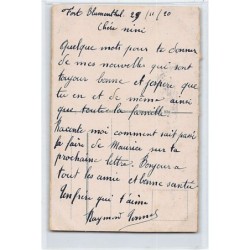 Fort Blumenthal. 29/11/20
Chère nini
Quelque mots pour te donner
de mes nouvelles qui sont
toujour bonne et j'espère que
tu en et de même ainsi
que toute la famille
Raconte moi comment sait passé
la foire de Maurice sur ta
prochaine lettre. Bonjour a
tout les amie et bonne santée
Ton frère qui t'aime
Raymond